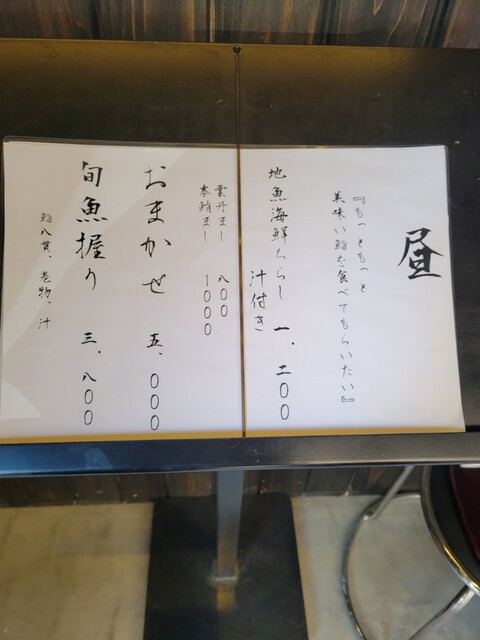 昼
『もっともっと
美味い鮨を食べてもらいたい』
地魚海鮮ちらし 一、二〇〇
汁付き
雲丹まし 八〇〇
本鮪まし 一〇〇〇
おまかせ 五、〇〇〇
旬魚握り 三、八〇〇
鮨八貫、巻物、汁